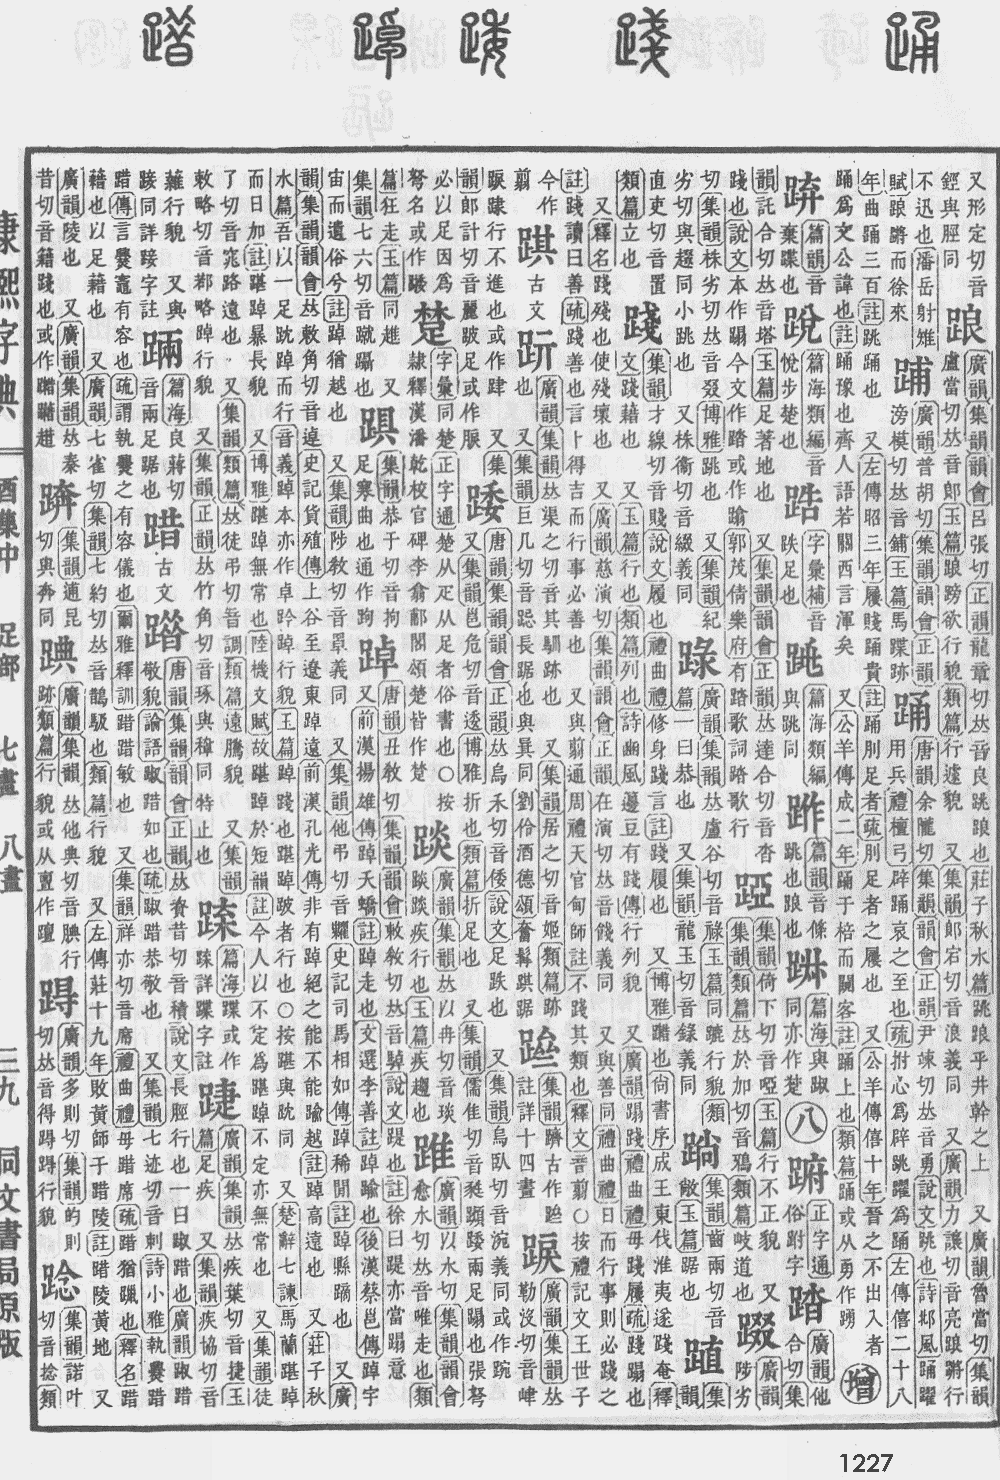 踊 踐 踒 踔 踖
又形定切音鋞與脛同 踉 廣韻集韻韻會呂張切正韻龍章切𠀤音良跳踉也莊子秋水篇跳踉乎井幹之上 又廣韻魯當切集韻盧當切𠀤音郎玉篇踉蹡欲行貌類篇行遽貌 又集韻郎宕切音浪義同 又廣韻力讓切音亮踉蹡行
不迅也潘岳射雉賦踉蹡而徐來 𨁏 廣韻普胡切集韻滂模切𠀤音鋪玉篇馬蹀跡 踊 唐韻余隴切集韻韻會正韻尹竦切𠀤音勇說文跳也詩邶風踊躍用兵禮檀弓辟踊哀之至也疏拊心爲辟跳躍爲踊左傳僖二十八
年曲踊三百註跳踊也 又左傳昭三年屨賤踊貴註踊刖足者疏刖足者之屨也 又公羊傳僖十年晉之不出入者踊爲文公諱也註踊豫也齊人語若關西言渾矣 又公羊傳成二年踊于棓而闚客註踊上也類篇踊或从勇作踴 增
篇韻音棄蹀也 篇海類編音悅步楚也 字彙補音 趺足也 篇海類編與跳同 篇韻音條跳也踉也 篇海與踧同亦作 八 正字通俗跗字 踏 廣韻他合切集
韻託合切𠀤音塔玉篇足著地也 又集韻韻會正韻𠀤達合切音沓踐也說文本作蹋今文作踏或作蹹郭茂倩樂府有踏歌詞踏歌行 啞 集韻倚下切音啞玉篇行不正貌 又集韻類篇𠀤於加切音鴉類篇岐道也 踱 廣韻陟劣
切集韻株劣切𠀤音叕博雅跳也 又株衞切音綴義同 又集韻紀劣切與趹同小跳也 踛 廣韻集韻𠀤盧谷切音祿玉篇一曰恭也 又集韻龍玉切音錄義同 集韻齒兩切音敞玉篇踞也 集韻
直吏切音置類篇立也 踐 集韻才線切音賤說文履也禮曲禮修身踐言註踐履也 又博雅蹋也尚書序成王東伐淮夷遂踐奄釋文踐藉也 又玉篇行也類篇列也詩豳風籩豆有踐傳行列貌 又廣韻蹋踐禮曲禮毋踐屨疏踐蹋也
又釋名踐殘也使殘壞也 又廣韻慈演切集韻韻會正韻在演切𠀤音餞義同 又與善同禮曲禮日而行事則必踐之註踐讀曰善疏踐善也言卜得吉而行事必善也 又與翦通周禮天官甸師註不踐其類也釋文音翦○按禮記文王世子
今作翦 踑 古文 廣韻集韻𠀤渠之切音其馴跡也 又集韻居之切音姬類篇跡也 又集韻巨几切音跽長踞也與跽同劉伶酒德頌奮髯踑踞 集韻躋古作註詳十四畫 踿 廣韻集韻𠀤勒沒切音
踞踛行不進也或作肆 踒 唐韻集韻韻會正韻𠀤烏禾切音倭說文足跌也 又集韻烏臥切音涴義同或作踠
韻郎計切音麗跛足也或作脹 又集韻邕危切音逶博雅折也類篇折足也 又集韻儒隹切音甤踒足蹋也張弩必以足因爲弩名或作蹳
楚 字彙同楚正字通楚从疋从足者俗書也○按隸釋漢潘乾校官碑李翕郙閣頌楚皆作楚 踕 廣韻集韻𠀤以冉切音琰玉篇疾趨也 踓 廣韻以水切集韻韻會愈水切𠀤音唯走也類
篇狂走玉篇同趡 又集韻七六切音蹴躡也 踘 集韻恭于切音拘足寒曲也通作跔 踔 唐韻丑敎切集韻韻會敕敎切𠀤音䟾說文踶也註徐曰踶亦當蹋意 又前漢揚雄傳踔夭蟜註踔走也文選李善註踔踰也後漢蔡邕傳踔宇
宙而遺俗兮註踔猶越也 又集韻陟敎切音罩義同 又集韻他弔切音糶史記司馬相如傳踔稀閒註踔縣蹢也 又廣韻集韻韻會𠀤敕角切音逴史記貨殖傳上谷至遼東踔遠前漢孔光傳非有踔絕之能不能踰越註踔高遠也 又莊子秋
水篇吾以一足趻踔而行音義踔本亦作卓昤踔行貌玉篇踔踐也踸踔跛者行也○按踸與趻同 又楚辭七諫馬蘭踸踔而日加註踸踔暴長貌 又博雅踸踔無常也陸機文賦故踸踔於短韻註今人以不定爲踸踔不定亦無常也 又集韻徒
了切音窕路遠也 又集韻類篇𠀤徒弔切音調類篇遠騰貌 又集韻敕略切音𨗉略踔行貌 又集韻正韻𠀤竹角切音琢與㣔同特止也 踈 篇海蹀或作踈詳蹀字註 踕 廣韻集韻𠀤疾葉切音捷玉篇足疾 又集韻疾協切音
蕹行貌 又與踥同詳踥字註 䠃 篇海良蔣切音兩足踞也 踖 古文 唐韻集韻韻會正韻𠀤資昔切音積說文長脛行也一曰踧踖也廣韻踧踖敬貌論語踧踖如也疏踧踖恭敬也 又集韻七迹切音刺詩小雅執爨踖
踖傳言爨竈有容也疏謂執爨之有容儀也爾雅釋訓踖踖敏也 又集韻祥亦切音席禮曲禮毋踖席疏踖猶躐也釋名踖藉也以足藉也 又廣韻七雀切集韻七約切𠀤音鵲䟴也類篇行貌 又左傳莊十九年敗黃師于踖陵註踖陵黃地 又
廣韻陵也 又廣韻集韻𠀤秦昔切音籍踐也或作蹃 集韻逋昆切與奔同 踺 廣韻集韻𠀤他典切音腆行跡類篇行貌或从亶作䠤 㝶 廣韻多則切集韻的則切𠀤音得㝶㝶行貌 踗 集韻諾叶切音捻類
康熙字典 酉集中 足部 七畫 八畫 三九 同文書局原版
1227